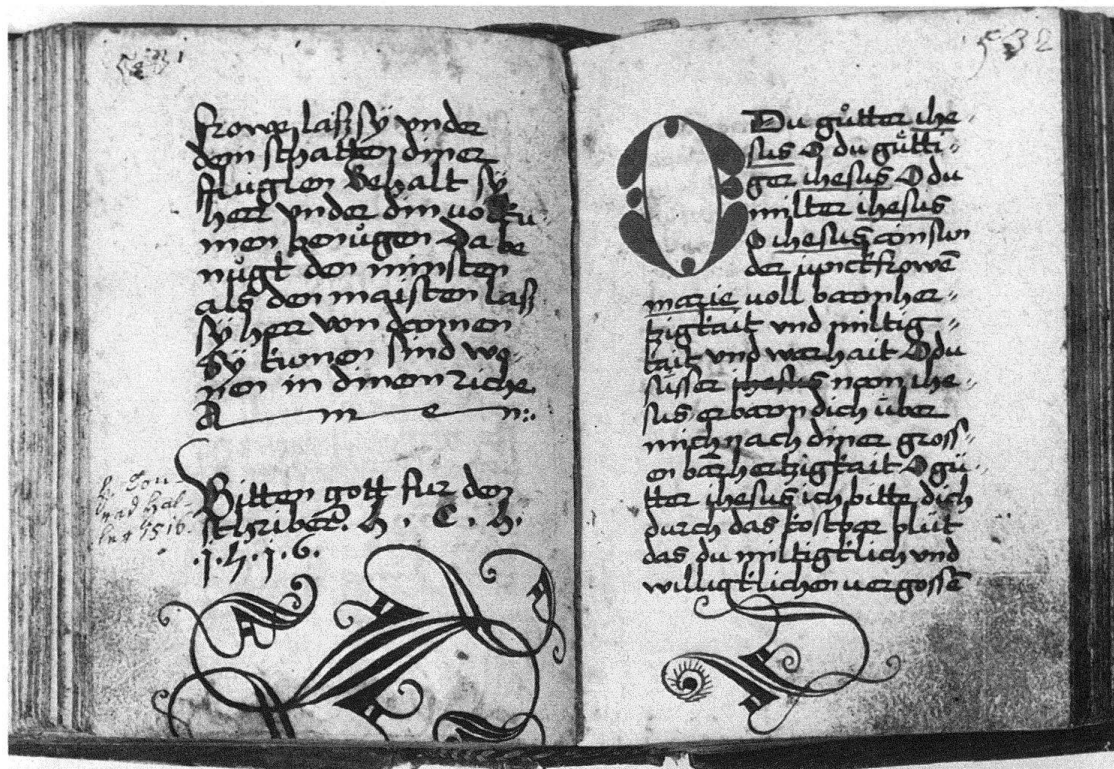 531
frowe laß sÿ vnder
dem schatten diner
flüglen Behalt sÿ
herr vnder din
men benůgen Da be
nůgt den minsten
als den maisten laß
sÿ herr von
Sÿ kumen sind wo-
nen in dinem riche
A m e n :.
Bitten gott für den
schriber. h. C. h.
.1.5.1.6.
h. Con-
rad Hal-
1516.
532
O Du gůtter ihe-
sus O du gůtti-
ger ihesus O du
milter ihesus
O ihesus ain sun
der junckfrowē
marie voll barmher-
tzigkait vnd miltig-
kait vnd warhait O du
süsser ihesus nam ihe-
sus erbarm dich über
mich nach diner gross-
en barhertzigkait O gů-
tter ihesus ich bitte dich
durch das kostper plůt
das du miltigklich vnd
willigklichen vergossē